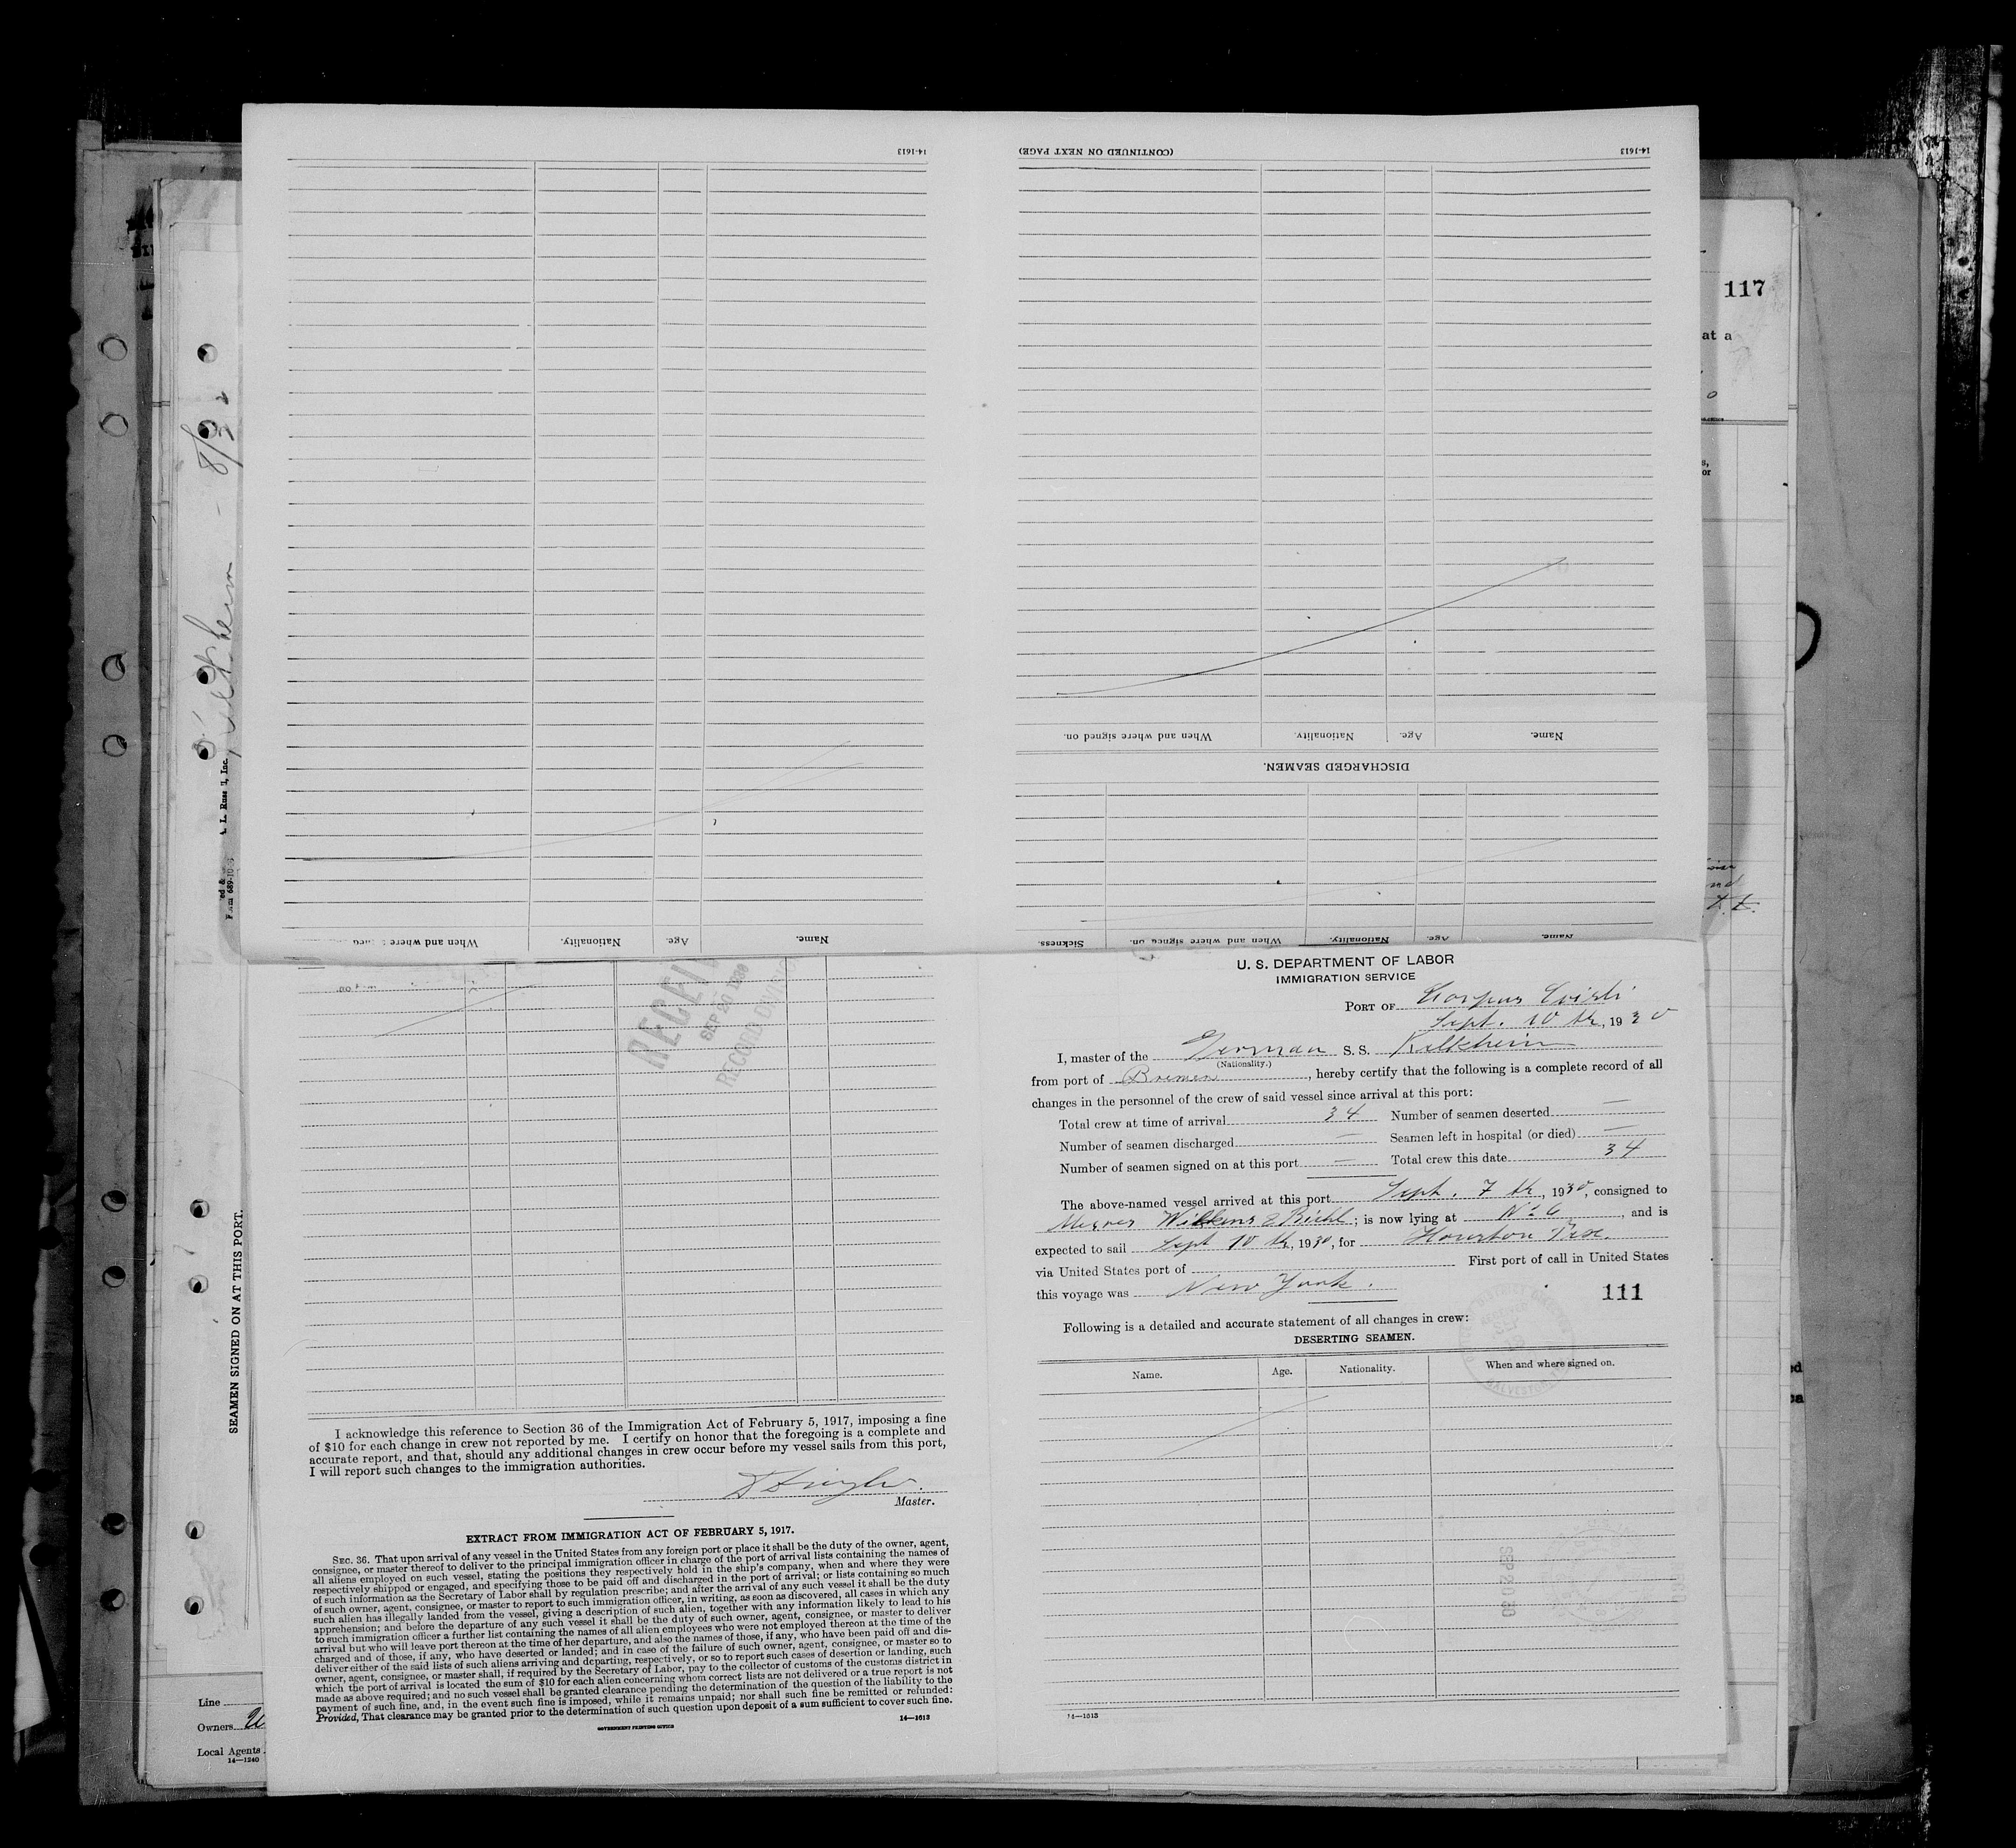 14-1613
(CONTINUED ON NEXT PAGE)
14-1613
117
at a
When and where signed on.
Nationality.
Age.
Name.
DISCHARGED SEAMEN.
Sickness.
When and where signed on.
Nationality.
Age.
Name.
When and where
Nationality.
Age.
Name.
SEP 20 1930
U. S. DEPARTMENT OF LABOR
IMMIGRATION SERVICE
PORT OF Corpus Cristi
Sept. 10 th, 1930
I, master of the German S. S. Kelkheim
(Nationality.)
from port of Bremen, hereby certify that the following is a complete record of all
changes in the personnel of the crew of said vessel since arrival at this port:
Total crew at time of arrival 34 Number of seamen deserted —
Number of seamen discharged — Seamen left in hospital (or died) —
Number of seamen signed on at this port — Total crew this date 34
The above-named vessel arrived at this port Sept. 7 th, 1930, consigned to
Wilkens & Biehl; is now lying at No 6, and is
expected to sail Sept 10 th, 1930, for Houston Tex.
via United States port of First port of call in United States
this voyage was New York.
111
Following is a detailed and accurate statement of all changes in crew:
DESERTING SEAMEN.
Name. Age. Nationality. When and where signed on.
SEP 20 30
14—1613
SEAMEN SIGNED ON AT THIS PORT.
I acknowledge this reference to Section 36 of the Immigration Act of February 5, 1917, imposing a fine
of $10 for each change in crew not reported by me. I certify on honor that the foregoing is a complete and
accurate report, and that, should any additional changes in crew occur before my vessel sails from this port,
I will report such changes to the immigration authorities.
Master.
EXTRACT FROM IMMIGRATION ACT OF FEBRUARY 5, 1917.
SEC. 36. That upon arrival of any vessel in the United States from any foreign port or place it shall be the duty of the owner, agent,
consignee, or master thereof to deliver to the principal immigration officer in charge of the port of arrival lists containing the names of
all aliens employed on such vessel, stating the positions they respectively hold in the ship's company, when and where they were
respectively shipped or engaged, and specifying those to be paid off and discharged in the port of arrival; or lists containing so much
of such information as the Secretary of Labor shall by regulation prescribe; and after the arrival of any such vessel it shall be the duty
of such owner, agent, consignee, or master to report to such immigration officer, in writing, as soon as discovered, all cases in which any
such alien has illegally landed from the vessel, giving a description of such alien, together with any information likely to lead to his
apprehension; and before the departure of any such vessel it shall be the duty of such owner, agent, consignee, or master to deliver
to such immigration officer a further list containing the names of all alien employees who were not employed thereon at the time of the
arrival but who will leave port thereon at the time of her departure, and also the names of those, if any, who have been paid off and dis-
charged and of those, if any, who have deserted or landed; and in case of the failure of such owner, agent, consignee, or master so to
deliver either of the said lists of such aliens arriving and departing, respectively, or so to report such cases of desertion or landing, such
owner, agent, consignee, or master shall, if required by the Secretary of Labor, pay to the collector of customs of the customs district in
which the port of arrival is located the sum of $10 for each alien concerning whom correct lists are not delivered or a true report is not
made as above required; and no such vessel shall be granted clearance pending the determination of the question of the liability to the
payment of such fine, and, in the event such fine is imposed, while it remains unpaid; nor shall such fine be remitted or refunded:
Provided, That clearance may be granted prior to the determination of such question upon deposit of a sum sufficient to cover such fine.
GOVERNMENT PRINTING OFFICE
14—1613
Line
Owners
Local Agents
14—1240